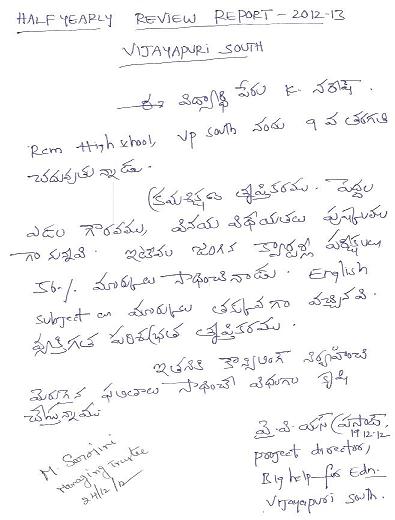 HALF YEARLY REVIEW REPORT - 2012-13
VIJAYAPURI SOUTH
ఈ విద్యార్థి పేరు K. నరేష్.
Rcm High school, VP South నందు 9 వ తరగతి
చదువుతున్నాడు.
క్రమశిక్షణ తృప్తికరము. పెద్దల
ఎడల గౌరవము, వినయ విధేయతలు పుష్కలము
గా ఉన్నవి. ఇటీవల జరిగిన క్వార్టర్లీ పరీక్షలలు
56.% మార్కులు సాధించినాడు. English
subject లు మార్కులు తక్కువగా వచ్చినవి.
వ్యక్తిగత పరిశుభ్రత తృప్తికరము.
ఇతనికి కౌన్సిలింగ్ నిర్వహించి
మెరుగైన ఫలితాలు సాధించే విధంగా కృషి
చేస్తున్నాము
M. Sarojini
Managing Trustee
24/12/12
వై. వి. యస్ ప్రసాద్,
19.12.12
project director,
Big help for Edn.
Vijayapuri South.